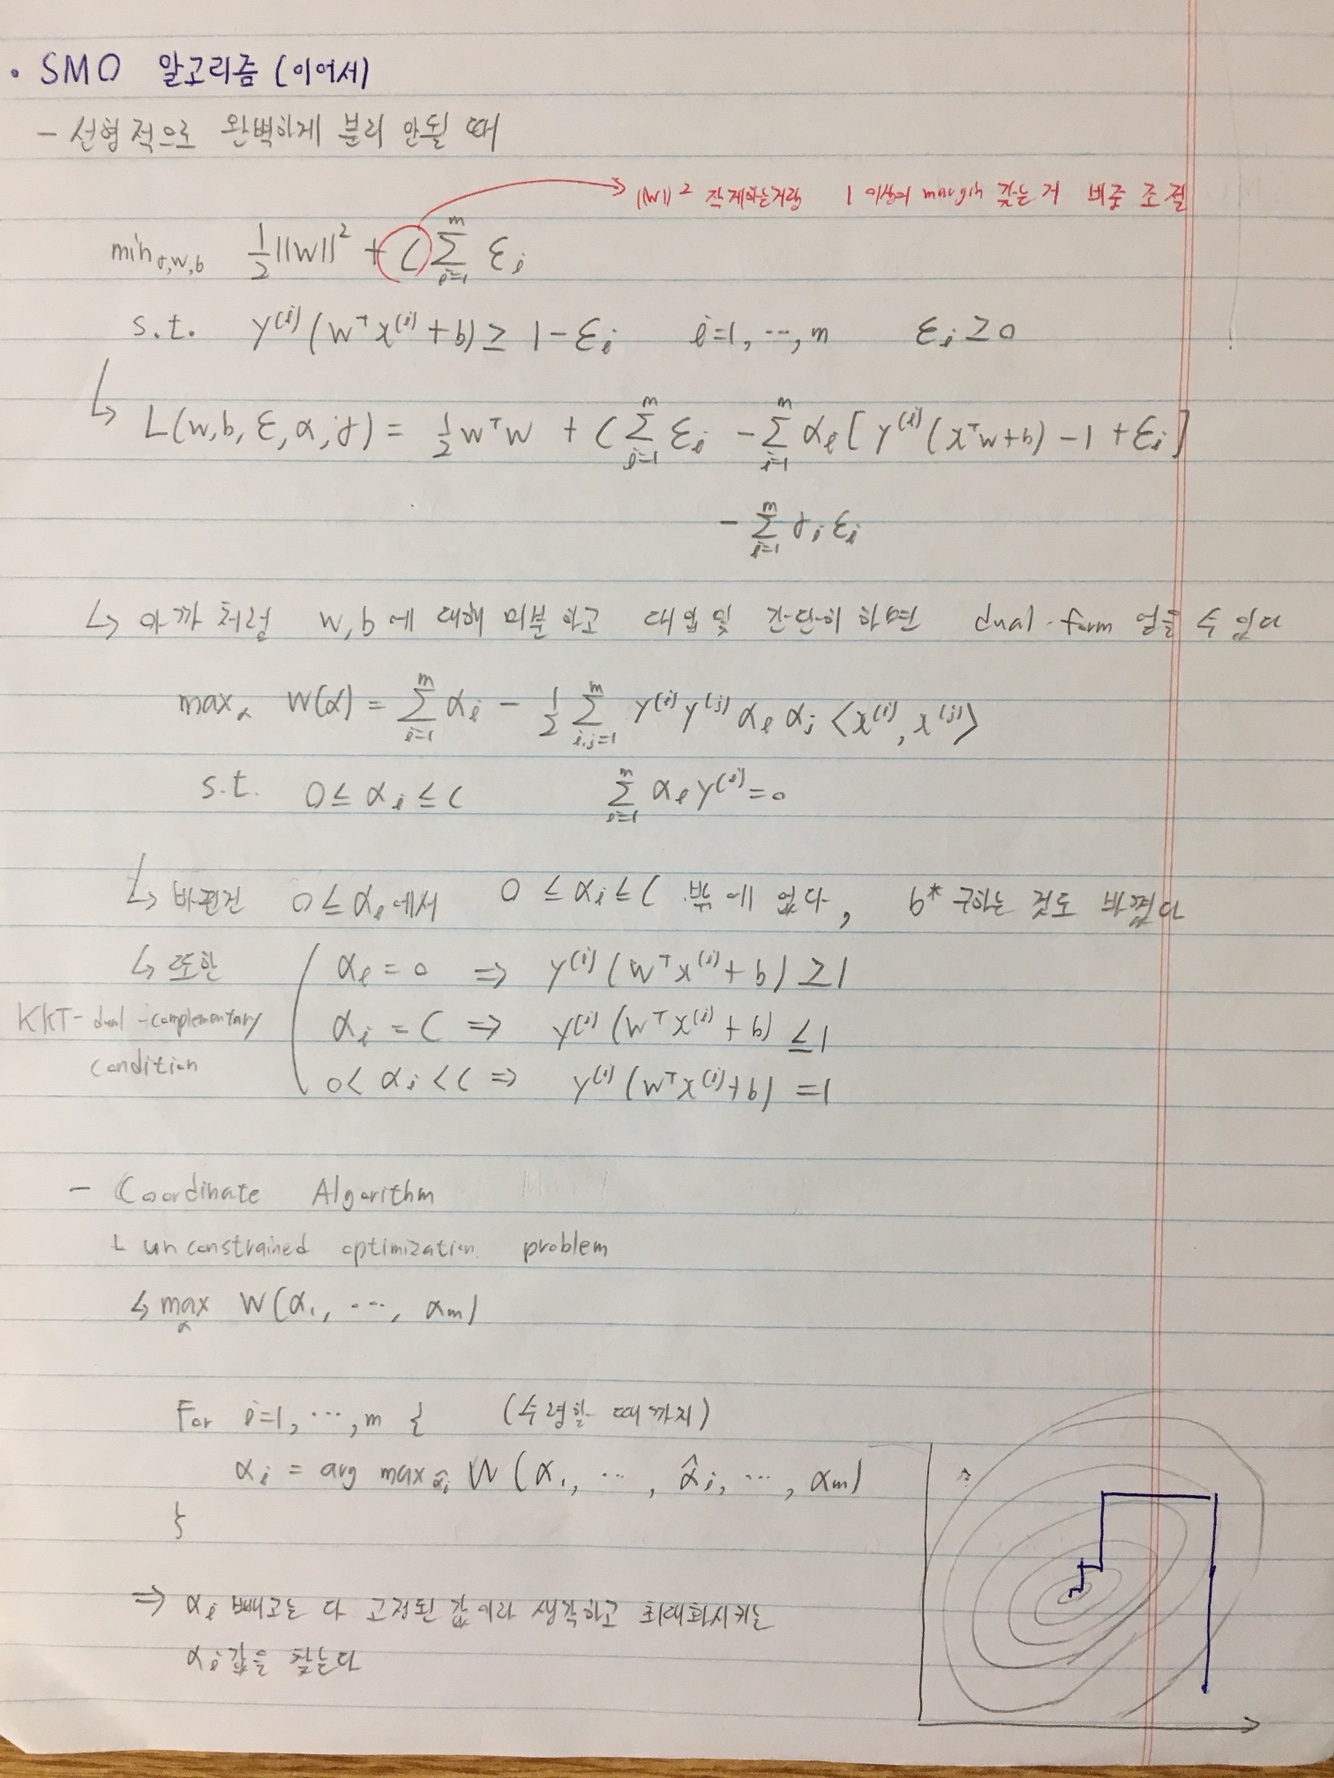 • SMO 알고리즘 (이어서)
- 선형적으로 완벽하게 분리 안될 때
||w||² 작게하는거랑 1 이상의 margin 갖는 거 비중 조절
min γ,w,b ½||w||² + C Σ_{i=1}^{m} ε_i
s.t. y^(i)(w^T x^(i) + b) ≥ 1 - ε_i i=1, ..., m ε_i ≥ 0
↳ L(w, b, ε, α, γ) = ½ w^T w + C Σ_{i=1}^{m} ε_i - Σ_{i=1}^{m} α_i [ y^(i) (x^T w + b) - 1 + ε_i ]
- Σ_{i=1}^{m} γ_i ε_i
↳ 아까 처럼 w, b에 대해 미분하고 대입 및 간단히 하면 dual form 얻을 수 있다
max_α W(α) = Σ_{i=1}^{m} α_i - ½ Σ_{i,j=1}^{m} y^(i) y^(j) α_i α_j <x^(i), x^(j)>
s.t. 0 ≤ α_i ≤ C Σ_{i=1}^{m} α_i y^(i) = 0
↳ 바뀐건 0 ≤ α_i에서 0 ≤ α_i ≤ C 밖에 없다, b* 구하는 것도 바꼈다
↳ 또한 α_i = 0 ⇒ y^(i) (w^T x^(i) + b) ≥ 1
KKT-dual-complementary α_i = C ⇒ y^(i) (w^T x^(i) + b) ≤ 1
condition 0 < α_i < C ⇒ y^(i) (w^T x^(i) + b) = 1
- Coordinate Algorithm
└ unconstrained optimization problem
↳ max_α W(α_1, ..., α_m)
For i=1, ..., m { (수렴할 때까지)
α_i = arg max_{α̂_i} W(α_1, ..., α̂_i, ..., α_m)
}
⇒ α_i 빼고는 다 고정된 값이라 생각하고 최대화시키는
α_i 값을 찾는다